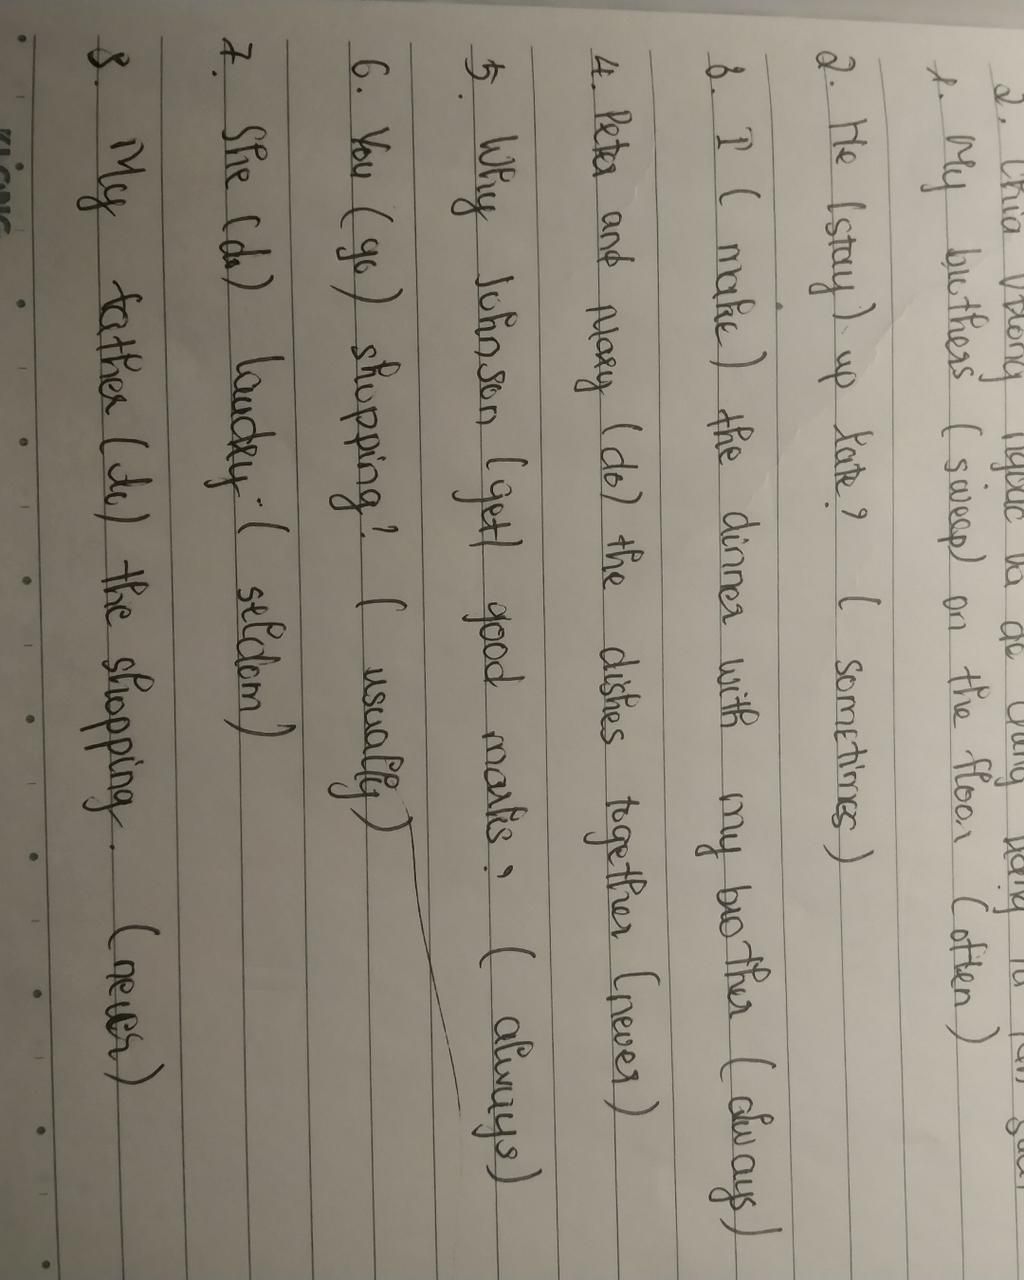 2. Chia động ngoặc và để đúng dạng từ tần suất
1. My brothers (sweep) on the floor (often)
2. He (stay) up late? (sometimes)
3. I (make) the dinner with my brother (always)
4. Peter and Mary (do) the dishes together (never)
5. Why Johnson (get) good marks? (always)
6. You (go) shopping? (usually)
7. She (do) laudry. (seldom)
8. My father (do) the shopping. (never)
KLONG